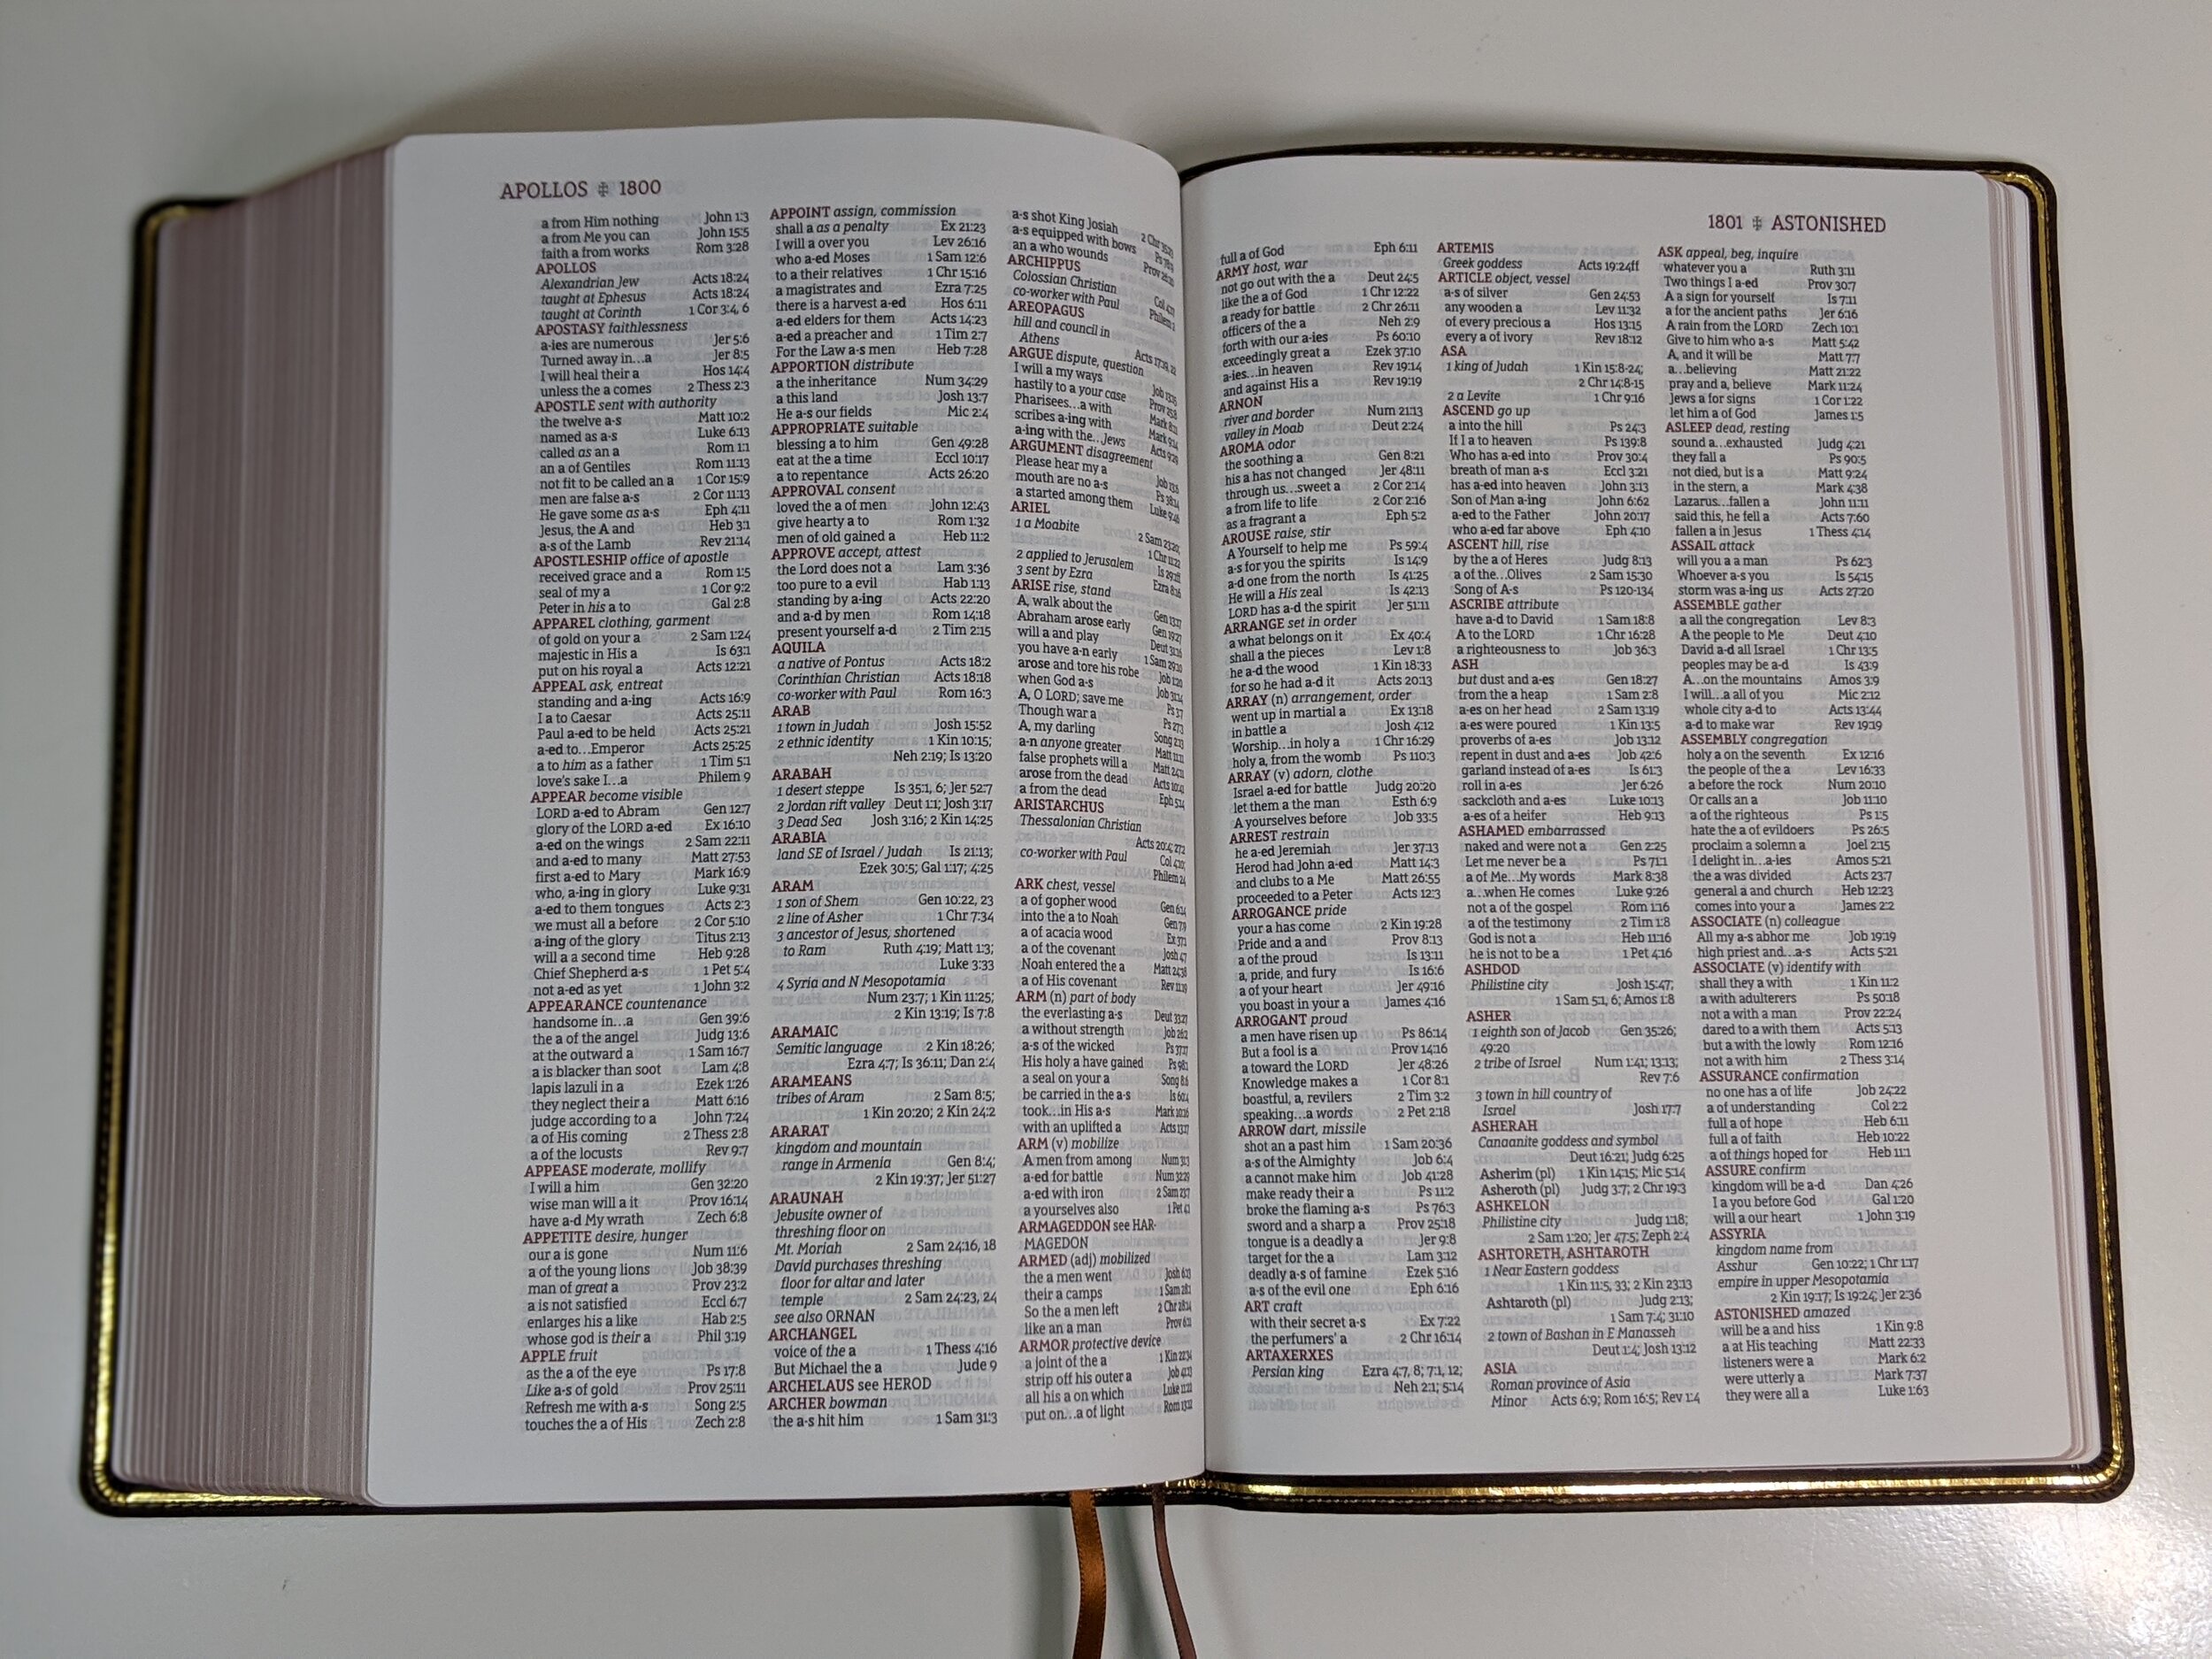 APOLLOS ⁜ 1800
a from Him nothing John 1:3
a from Me you can John 15:5
faith a from works Rom 3:28
APOLLOS
Alexandrian Jew Acts 18:24
taught at Ephesus Acts 18:24
taught at Corinth 1 Cor 3:4, 6
APOSTASY faithlessness
a-ies are numerous Jer 5:6
Turned away in...a Jer 8:5
I will heal their a Hos 14:4
unless the a comes 2 Thess 2:3
APOSTLE sent with authority
the twelve a-s Matt 10:2
named as a-s Luke 6:13
called as an a Rom 1:1
an a of Gentiles Rom 11:13
not fit to be called an a 1 Cor 15:9
men are false a-s 2 Cor 11:13
He gave some as a-s Eph 4:11
Jesus, the A and Heb 3:1
a-s of the Lamb Rev 21:14
APOSTLESHIP office of apostle
received grace and a Rom 1:5
seal of my a 1 Cor 9:2
Peter in his a to Gal 2:8
APPAREL clothing, garment
of gold on your a 2 Sam 1:24
majestic in His a Is 63:1
put on his royal a Acts 12:21
APPEAL ask, entreat
standing and a-ing Acts 16:9
I a to Caesar Acts 25:11
Paul a-ed to be held Acts 25:21
a-ed to...Emperor Acts 25:25
a to him as a father 1 Tim 5:1
love's sake I...a Philem 9
APPEAR become visible
LORD a-ed to Abram Gen 12:7
glory of the LORD a-ed Ex 16:10
a-ed on the wings 2 Sam 22:11
and a-ed to many Matt 27:53
first a-ed to Mary Mark 16:9
who, a-ing in glory Luke 9:31
a-ed to them tongues Acts 2:3
we must all a before 2 Cor 5:10
a-ing of the glory Titus 2:13
will a a second time Heb 9:28
Chief Shepherd a-s 1 Pet 5:4
not a-ed as yet 1 John 3:2
APPEARANCE countenance
handsome in...a Gen 39:6
the a of the angel Judg 13:6
at the outward a 1 Sam 16:7
a is blacker than soot Lam 4:8
lapis lazuli in a Ezek 1:26
they neglect their a Matt 6:16
judge according to a John 7:24
a of His coming 2 Thess 2:8
a of the locusts Rev 9:7
APPEASE moderate, mollify
I will a him Gen 32:20
wise man will a it Prov 16:14
have a-d My wrath Zech 6:8
APPETITE desire, hunger
our a is gone Num 11:6
a of the young lions Job 38:39
man of great a Prov 23:2
a is not satisfied Eccl 6:7
enlarges his a like Hab 2:5
whose god is their a Phil 3:19
APPLE fruit
as the a of the eye Ps 17:8
Like a-s of gold Prov 25:11
Refresh me with a-s Song 2:5
touches the a of His Zech 2:8
APPOINT assign, commission
shall a as a penalty Ex 21:23
I will a over you Lev 26:16
who a-ed Moses 1 Sam 12:6
to a their relatives 1 Chr 15:16
a magistrates and Ezra 7:25
there is a harvest a-ed Hos 6:11
a-ed elders for them Acts 14:23
a-ed a preacher and 1 Tim 2:7
For the Law a-s men Heb 7:28
APPORTION distribute
a the inheritance Num 34:29
a this land Josh 13:7
He a-s our fields Mic 2:4
APPROPRIATE suitable
blessing a to him Gen 49:28
eat at the a time Eccl 10:17
a to repentance Acts 26:20
APPROVAL consent
loved the a of men John 12:43
give hearty a to Rom 1:32
men of old gained a Heb 11:2
APPROVE accept, attest
the Lord does not a Lam 3:36
too pure to a evil Hab 1:13
standing by a-ing Acts 22:20
and a-d by men Rom 14:18
present yourself a-d 2 Tim 2:15
AQUILA
a native of Pontus Acts 18:2
Corinthian Christian Acts 18:18
co-worker with Paul Rom 16:3
ARAB
1 town in Judah Josh 15:52
2 ethnic identity 1 Kin 10:15;
Neh 2:19; Is 13:20
ARABAH
1 desert steppe Is 35:1, 6; Jer 52:7
2 Jordan rift valley Deut 1:1; Josh 3:17
3 Dead Sea Josh 3:16; 2 Kin 14:25
ARABIA
land SE of Israel / Judah Is 21:13;
Ezek 30:5; Gal 1:17; 4:25
ARAM
1 son of Shem Gen 10:22, 23
2 line of Asher 1 Chr 7:34
3 ancestor of Jesus, shortened
to Ram Ruth 4:19; Matt 1:3;
Luke 3:33
4 Syria and N Mesopotamia
Num 23:7; 1 Kin 11:25;
2 Kin 13:19; Is 7:8
ARAMAIC
Semitic language 2 Kin 18:26;
Ezra 4:7; Is 36:11; Dan 2:4
ARAMEANS
tribes of Aram 2 Sam 8:5;
1 Kin 20:20; 2 Kin 24:2
ARARAT
kingdom and mountain
range in Armenia Gen 8:4;
2 Kin 19:37; Jer 51:27
ARAUNAH
Jebusite owner of
threshing floor on
Mt. Moriah 2 Sam 24:16, 18
David purchases threshing
floor for altar and later
temple 2 Sam 24:23, 24
see also ORNAN
ARCHANGEL
voice of the a 1 Thess 4:16
But Michael the a Jude 9
ARCHELAUS see HEROD
ARCHER bowman
the a-s hit him 1 Sam 31:3
a-s shot King Josiah
a-s equipped with bows
an a who wounds
ARCHIPPUS
Colossian Christian
co-worker with Paul
AREOPAGUS
hill and council in
Athens
ARGUE dispute, question
I will a my ways
hastily to a your case
Pharisees...a with
scribes a-ing with
a-ing with the...Jews Acts 9:29
ARGUMENT disagreement
Please hear my a
mouth are no a-s
a started among them
ARIEL
1 a Moabite 2 Sam 23:20;
1 Chr 11:22
2 applied to Jerusalem
3 sent by Ezra Ezra 8:16
ARISE rise, stand
A, walk about the Gen 13:17
Abraham arose early Gen 19:27
will a and play Deut 31:16
you have a-n early 1 Sam 29:10
arose and tore his robe Job 1:20
when God a-s Job 31:14
A, O LORD; save me Ps 3:7
Though war a Ps 27:3
A, my darling Song 2:13
a-n anyone greater Matt 11:11
false prophets will a Matt 24:11
arose from the dead Acts 10:41
a from the dead Eph 5:14
ARISTARCHUS
Thessalonian Christian
Acts 20:4; 27:2
co-worker with Paul Col 4:10;
Philem 24
ARK chest, vessel
a of gopher wood Gen 6:14
into the a to Noah Gen 7:9
a of acacia wood Ex 37:1
a of the covenant Josh 4:7
Noah entered the a Matt 24:38
a of His covenant Rev 11:19
ARM (n) part of body
the everlasting a-s Deut 33:27
a without strength Job 26:2
a-s of the wicked Ps 37:17
His holy a have gained Ps 98:1
a seal on your a Song 8:6
be carried in the a-s Is 60:4
took...in His a-s Mark 10:16
with an uplifted a Acts 13:17
ARM (v) mobilize
A men from among Num 31:3
a-ed for battle Num 32:29
a-ed with iron 2 Sam 23:7
a yourselves also 1 Pet 4:1
ARMAGEDDON see HAR-
MAGEDON
ARMED (adj) mobilized
the a men went Josh 6:13
their a camps 1 Sam 28:1
So the a men left 2 Chr 28:14
like an a man Prov 6:11
ARMOR protective device
a joint of the a 1 Kin 22:34
strip off his outer a Job 41:13
all his a on which Luke 11:22
put on...a of light Rom 13:12
1801 ⁜ ASTONISHED
full a of God Eph 6:11
ARMY host, war
not go out with the a Deut 24:5
like the a of God 1 Chr 12:22
a ready for battle 2 Chr 26:11
officers of the a Neh 2:9
forth with our a-ies Ps 60:10
exceedingly great a Ezek 37:10
a-ies...in heaven Rev 19:14
and against His a Rev 19:19
ARNON
river and border Num 21:13
valley in Moab Deut 2:24
AROMA odor
the soothing a Gen 8:21
his a has not changed Jer 48:11
through us...sweet a 2 Cor 2:14
a from life to life 2 Cor 2:16
as a fragrant a Eph 5:2
AROUSE raise, stir
A Yourself to help me Ps 59:4
a-s for you the spirits Is 14:9
a-d one from the north Is 41:25
He will a His zeal Is 42:13
LORD has a-d the spirit Jer 51:11
ARRANGE set in order
a what belongs on it Ex 40:4
shall a the pieces Lev 1:8
he a-d the wood 1 Kin 18:33
for so he had a-d it Acts 20:13
ARRAY (n) arrangement, order
went up in martial a Ex 13:18
in battle a Josh 4:12
Worship...in holy a 1 Chr 16:29
holy a, from the womb Ps 110:3
ARRAY (v) adorn, clothe
Israel a-ed for battle Judg 20:20
let them a the man Esth 6:9
A yourselves before Job 33:5
ARREST restrain
he a-ed Jeremiah Jer 37:13
Herod had John a-ed Matt 14:3
and clubs to a Me Matt 26:55
proceeded to a Peter Acts 12:3
ARROGANCE pride
your a has come 2 Kin 19:28
Pride and a and Prov 8:13
a of the proud Is 13:11
a, pride, and fury Is 16:6
a of your heart Jer 49:16
you boast in your a James 4:16
ARROGANT proud
a men have risen up Ps 86:14
But a fool is a Prov 14:16
a toward the LORD Jer 48:26
Knowledge makes a 1 Cor 8:1
boastful, a, revilers 2 Tim 3:2
speaking...a words 2 Pet 2:18
ARROW dart, missile
shot an a past him 1 Sam 20:36
a-s of the Almighty Job 6:4
a cannot make him Job 41:28
make ready their a Ps 11:2
broke the flaming a-s Ps 76:3
sword and a sharp a Prov 25:18
tongue is a deadly a Jer 9:8
target for the a Lam 3:12
deadly a-s of famine Ezek 5:16
a-s of the evil one Eph 6:16
ART craft
with their secret a-s Ex 7:22
the perfumers' a 2 Chr 16:14
ARTAXERXES
Persian king Ezra 4:7, 8; 7:1, 12;
Neh 2:1; 5:14
ARTEMIS
Greek goddess Acts 19:24ff
ARTICLE object, vessel
a-s of silver Gen 24:53
any wooden a Lev 11:32
of every precious a Hos 13:15
every a of ivory Rev 18:12
ASA
1 king of Judah 1 Kin 15:8-24;
2 Chr 14:8-15
2 a Levite 1 Chr 9:16
ASCEND go up
a into the hill Ps 24:3
If I a to heaven Ps 139:8
Who has a-ed into Prov 30:4
breath of man a-s Eccl 3:21
has a-ed into heaven John 3:13
Son of Man a-ing John 6:62
a-ed to the Father John 20:17
who a-ed far above Eph 4:10
ASCENT hill, rise
by the a of Heres Judg 8:13
a of the...Olives 2 Sam 15:30
Song of A-s Ps 120-134
ASCRIBE attribute
have a-d to David 1 Sam 18:8
A to the LORD 1 Chr 16:28
a righteousness to Job 36:3
ASH
but dust and a-es Gen 18:27
from the a heap 1 Sam 2:8
a-es on her head 2 Sam 13:19
a-es were poured 1 Kin 13:5
proverbs of a-es Job 13:12
repent in dust and a-es Job 42:6
garland instead of a-es Is 61:3
roll in a-es Jer 6:26
sackcloth and a-es Luke 10:13
a-es of a heifer Heb 9:13
ASHAMED embarrassed
naked and were not a Gen 2:25
Let me never be a Ps 71:1
a of Me...My words Mark 8:38
a...when He comes Luke 9:26
not a of the gospel Rom 1:16
a of the testimony 2 Tim 1:8
God is not a Heb 11:16
he is not to be a 1 Pet 4:16
ASHDOD
Philistine city Josh 15:47;
1 Sam 5:1, 6; Amos 1:8
ASHER
1 eighth son of Jacob Gen 35:26;
49:20
2 tribe of Israel Num 1:41; 13:13;
Rev 7:6
3 town in hill country of
Israel Josh 17:7
ASHERAH
Canaanite goddess and symbol
Deut 16:21; Judg 6:25
Asherim (pl) 1 Kin 14:15; Mic 5:14
Asheroth (pl) Judg 3:7; 2 Chr 19:3
ASHKELON
Philistine city Judg 1:18;
2 Sam 1:20; Jer 47:5; Zeph 2:4
ASHTORETH, ASHTAROTH
1 Near Eastern goddess
1 Kin 11:5, 33; 2 Kin 23:13
Ashtaroth (pl) Judg 2:13;
1 Sam 7:4; 31:10
2 town of Bashan in E Manasseh
Deut 1:4; Josh 13:12
ASIA
Roman province of Asia
Minor Acts 6:9; Rom 16:5; Rev 1:4
ASK appeal, beg, inquire
whatever you a Ruth 3:11
Two things I a-ed Prov 30:7
A a sign for yourself Is 7:11
a for the ancient paths Jer 6:16
A rain from the LORD Zech 10:1
Give to him who a-s Matt 5:42
A, and it will be Matt 7:7
a...believing Matt 21:22
pray and a, believe Mark 11:24
Jews a for signs 1 Cor 1:22
let him a of God James 1:5
ASLEEP dead, resting
sound a...exhausted Judg 4:21
they fall a Ps 90:5
not died, but is a Matt 9:24
in the stern, a Mark 4:38
Lazarus...fallen a John 11:11
said this, he fell a Acts 7:60
fallen a in Jesus 1 Thess 4:14
ASSAIL attack
will you a a man Ps 62:3
Whoever a-s you Is 54:15
storm was a-ing us Acts 27:20
ASSEMBLE gather
a all the congregation Lev 8:3
A the people to Me Deut 4:10
David a-d all Israel 1 Chr 13:5
peoples may be a-d Is 43:9
A...on the mountains Amos 3:9
I will...a all of you Mic 2:12
whole city a-d to Acts 13:44
a-d to make war Rev 19:19
ASSEMBLY congregation
holy a on the seventh Ex 12:16
the people of the a Lev 16:33
a before the rock Num 20:10
Or calls an a Job 11:10
a of the righteous Ps 1:5
hate the a of evildoers Ps 26:5
proclaim a solemn a Joel 2:15
I delight in...a-ies Amos 5:21
the a was divided Acts 23:7
general a and church Heb 12:23
comes into your a James 2:2
ASSOCIATE (n) colleague
All my a-s abhor me Job 19:19
high priest and...a-s Acts 5:21
ASSOCIATE (v) identify with
shall they a with 1 Kin 11:2
a with adulterers Ps 50:18
not a with a man Prov 22:24
dared to a with them Acts 5:13
but a with the lowly Rom 12:16
not a with him 2 Thess 3:14
ASSURANCE confirmation
no one has a of life Job 24:22
a of understanding Col 2:2
full a of hope Heb 6:11
full a of faith Heb 10:22
a of things hoped for Heb 11:1
ASSURE confirm
kingdom will be a-d Dan 4:26
I a you before God Gal 1:20
will a our heart 1 John 3:19
ASSYRIA
kingdom name from
Asshur Gen 10:22; 1 Chr 1:17
empire in upper Mesopotamia
2 Kin 19:17; Is 19:24; Jer 2:36
ASTONISHED amazed
will be a and hiss 1 Kin 9:8
a at His teaching Matt 22:33
listeners were a Mark 6:2
were utterly a Mark 7:37
they were all a Luke 1:63